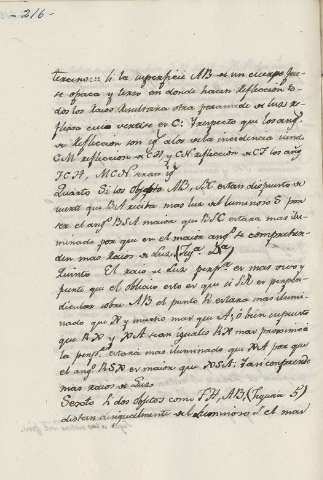 - 216 -
tercino:: si la superficie AB es un cuerpo fue-
se opaca y terso en donde hacen reflección to-
dos los raios resultara otra piramide de luz re-
flexa cuia vertice es C: respecto que los ang.^s
de Reflección son ig.^s a los de la incidencia siendo
CM reflección de CH y CN reflección de CI los ang.^s
ICH, MCN seran ig.^s
Quarto Si los objetos AB, AC estan dispuestos de
suerte que BA reciba mas luz del luminoso S por
ser el ang.^o BSA maior que ASC estara mas ilu-
minado por que en el maior ang.^o se comprehen-
den mas raios de Luz, (Fig.^a 4.^a)
Quinto El raio de Luz perp.^r es mas vivo y
fuerte que el oblicuo esto es que si SR es perpen-
dicular sobre AB el punto R estara mas ilumi-
nado que X y mucho mas que A; ó bien supuesto
que RX y XA sean iguales RX mas proximo á
la perp.^r estará mas iluminado que XA por que
el ang.^o RSX es maior que XSA: y asi comprende
mas raios de Luz
Sexto Si dos objetos como FH, AB, (Figura 5)
distan desigualmente del luminoso S el mas